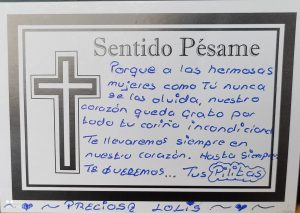 Sentido Pésame
Porque a las hermosas
mujeres como Tú nunca
se las olvida, nuestro
corazón queda grato por
todo tu cariño incondicional
Te llevaremos siempre en
nuestro corazón. Hasta siempre
TE queremos... Tus Pilitas
PRECIOSA LOLIS